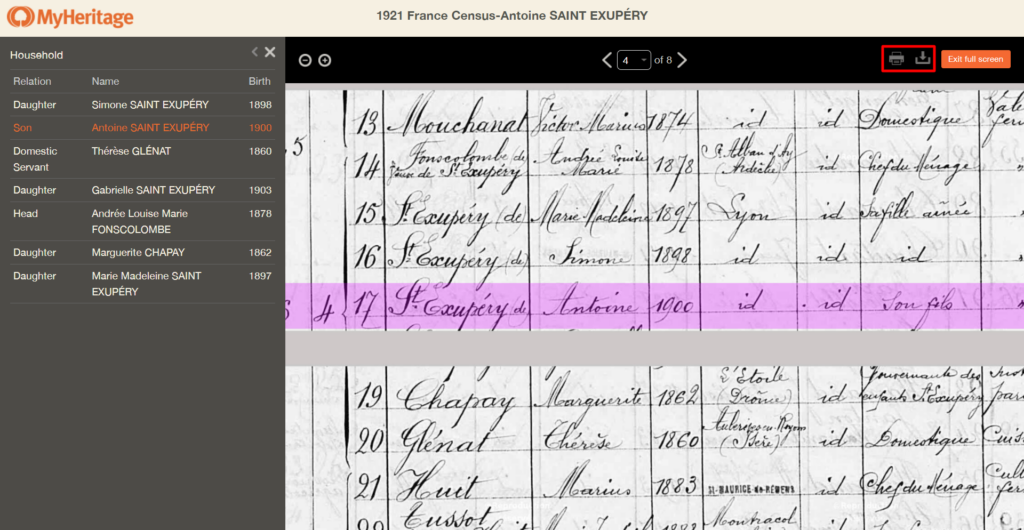 MyHeritage
1921 France Census-Antoine SAINT EXUPÉRY
Household
Relation Name Birth
Daughter Simone SAINT EXUPÉRY 1898
Son Antoine SAINT EXUPÉRY 1900
Domestic Servant Thérèse GLÉNAT 1860
Daughter Gabrielle SAINT EXUPÉRY 1903
Head Andrée Louise Marie FONSCOLOMBE 1878
Daughter Marguerite CHAPAY 1862
Daughter Marie Madeleine SAINT EXUPÉRY 1897
4 of 8
Exit full screen
5
13 Mouchanat Victor Marius 1874 id id Domestique
14 Fonscolombe de Andrée Louise
de St Exupéry Marie 1878 St Alban d'Ay (Ardèche) id Chef du Ménage
15 St Exupéry (de) Marie Madeleine 1897 Lyon id Sa fille aînée
16 St Exupéry (de) Simone 1898 id id id
4 17 St Exupéry de Antoine 1900 id id Son fils
19 Chapay Marguerite 1862 L'Etoile (Drôme) id Gouvernante des enfants St Exupéry
20 Glénat Thérèse 1860 (Isère) id Domestique
21 Huit Marius 1883 St-MAURICE-de-RÉMENS id Chef du Ménage
Tussot